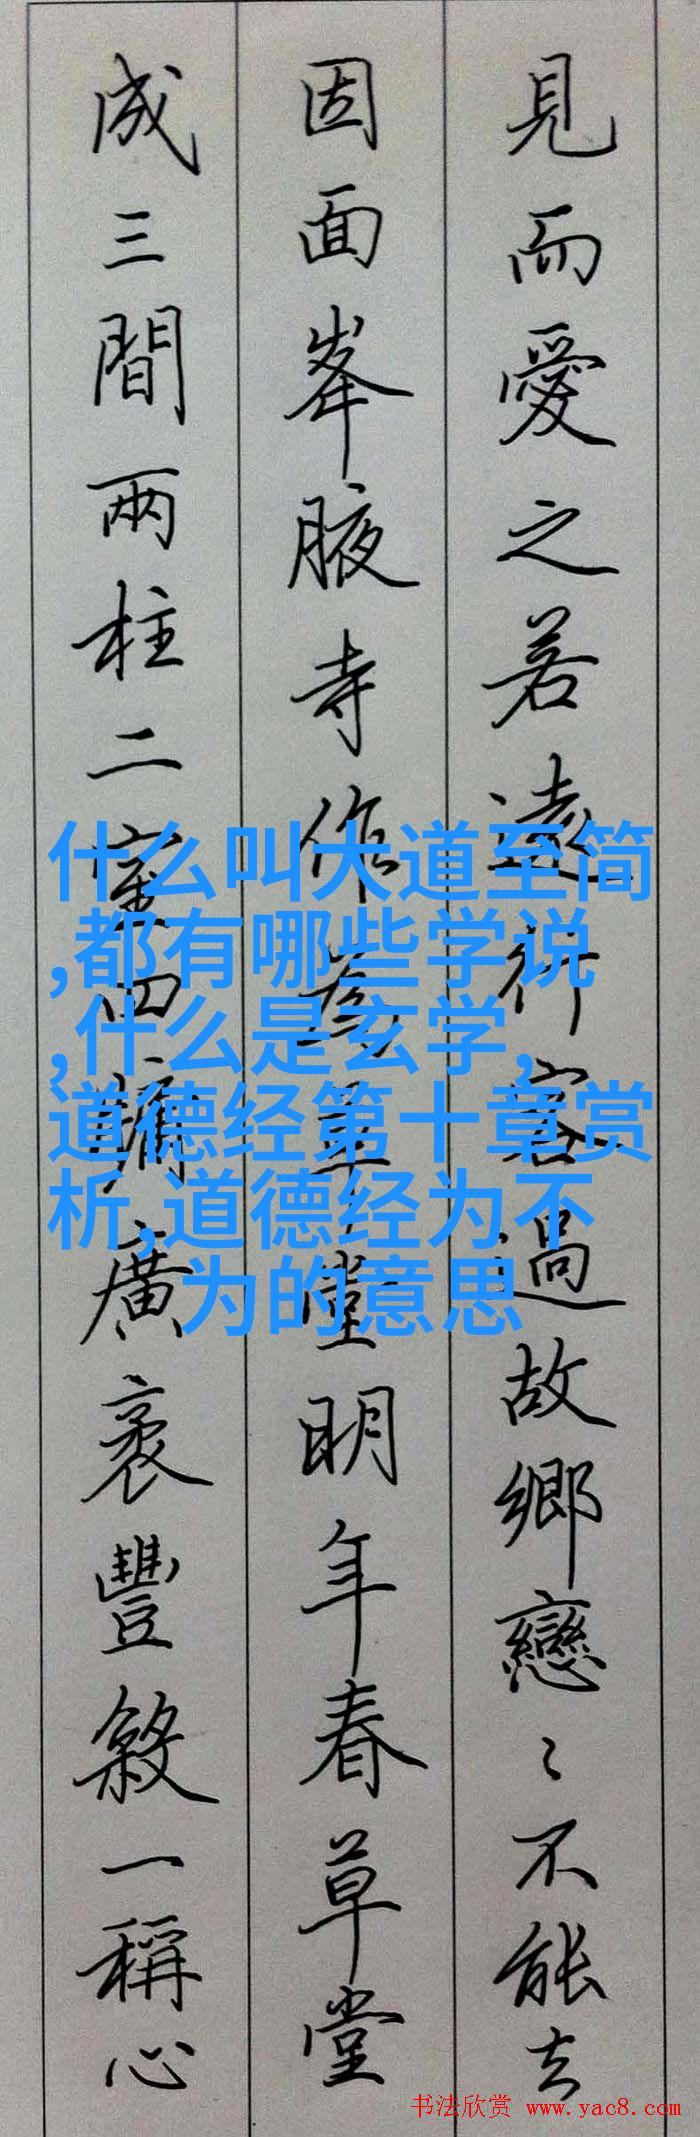 見而愛之若遠行客過故鄉戀〻不能去
因面峯腋寺作爲草堂明年春草堂
成三間兩柱二室四牖廣袤豐殺一稱心
什么叫大道至简
,都有哪些学说
,什么是玄学,
道德经第十章赏
析,道德经为不
为的意思
书法欣赏 www.yac8.com